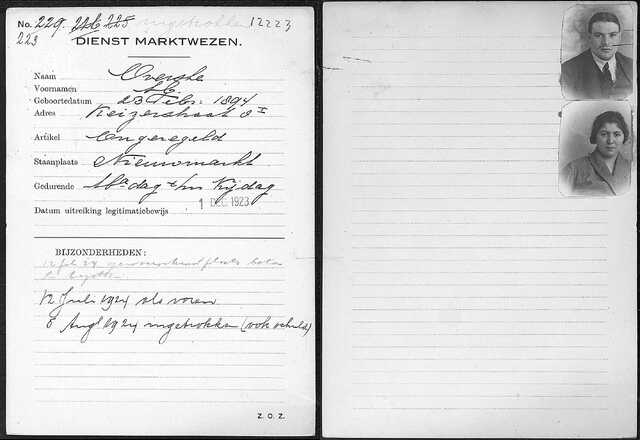 No. 229. 226 225 ingetrokken 12223
223
DIENST MARKTWEZEN.
Naam
Voornamen
Geboortedatum 23 Febr. 1894
Adres Keizerstraat 8 I
Artikel Ongeregeld
Staanplaats Nieuwmarkt
Gedurende Ma dag t/m Vrijdag
Datum uitreiking legitimatiebewijs 1 DEC. 1923
BIJZONDERHEDEN:
12 Juli 1924 als voren
8 Aug 1924 ingetrokken (ook schuld)
Z. O. Z.